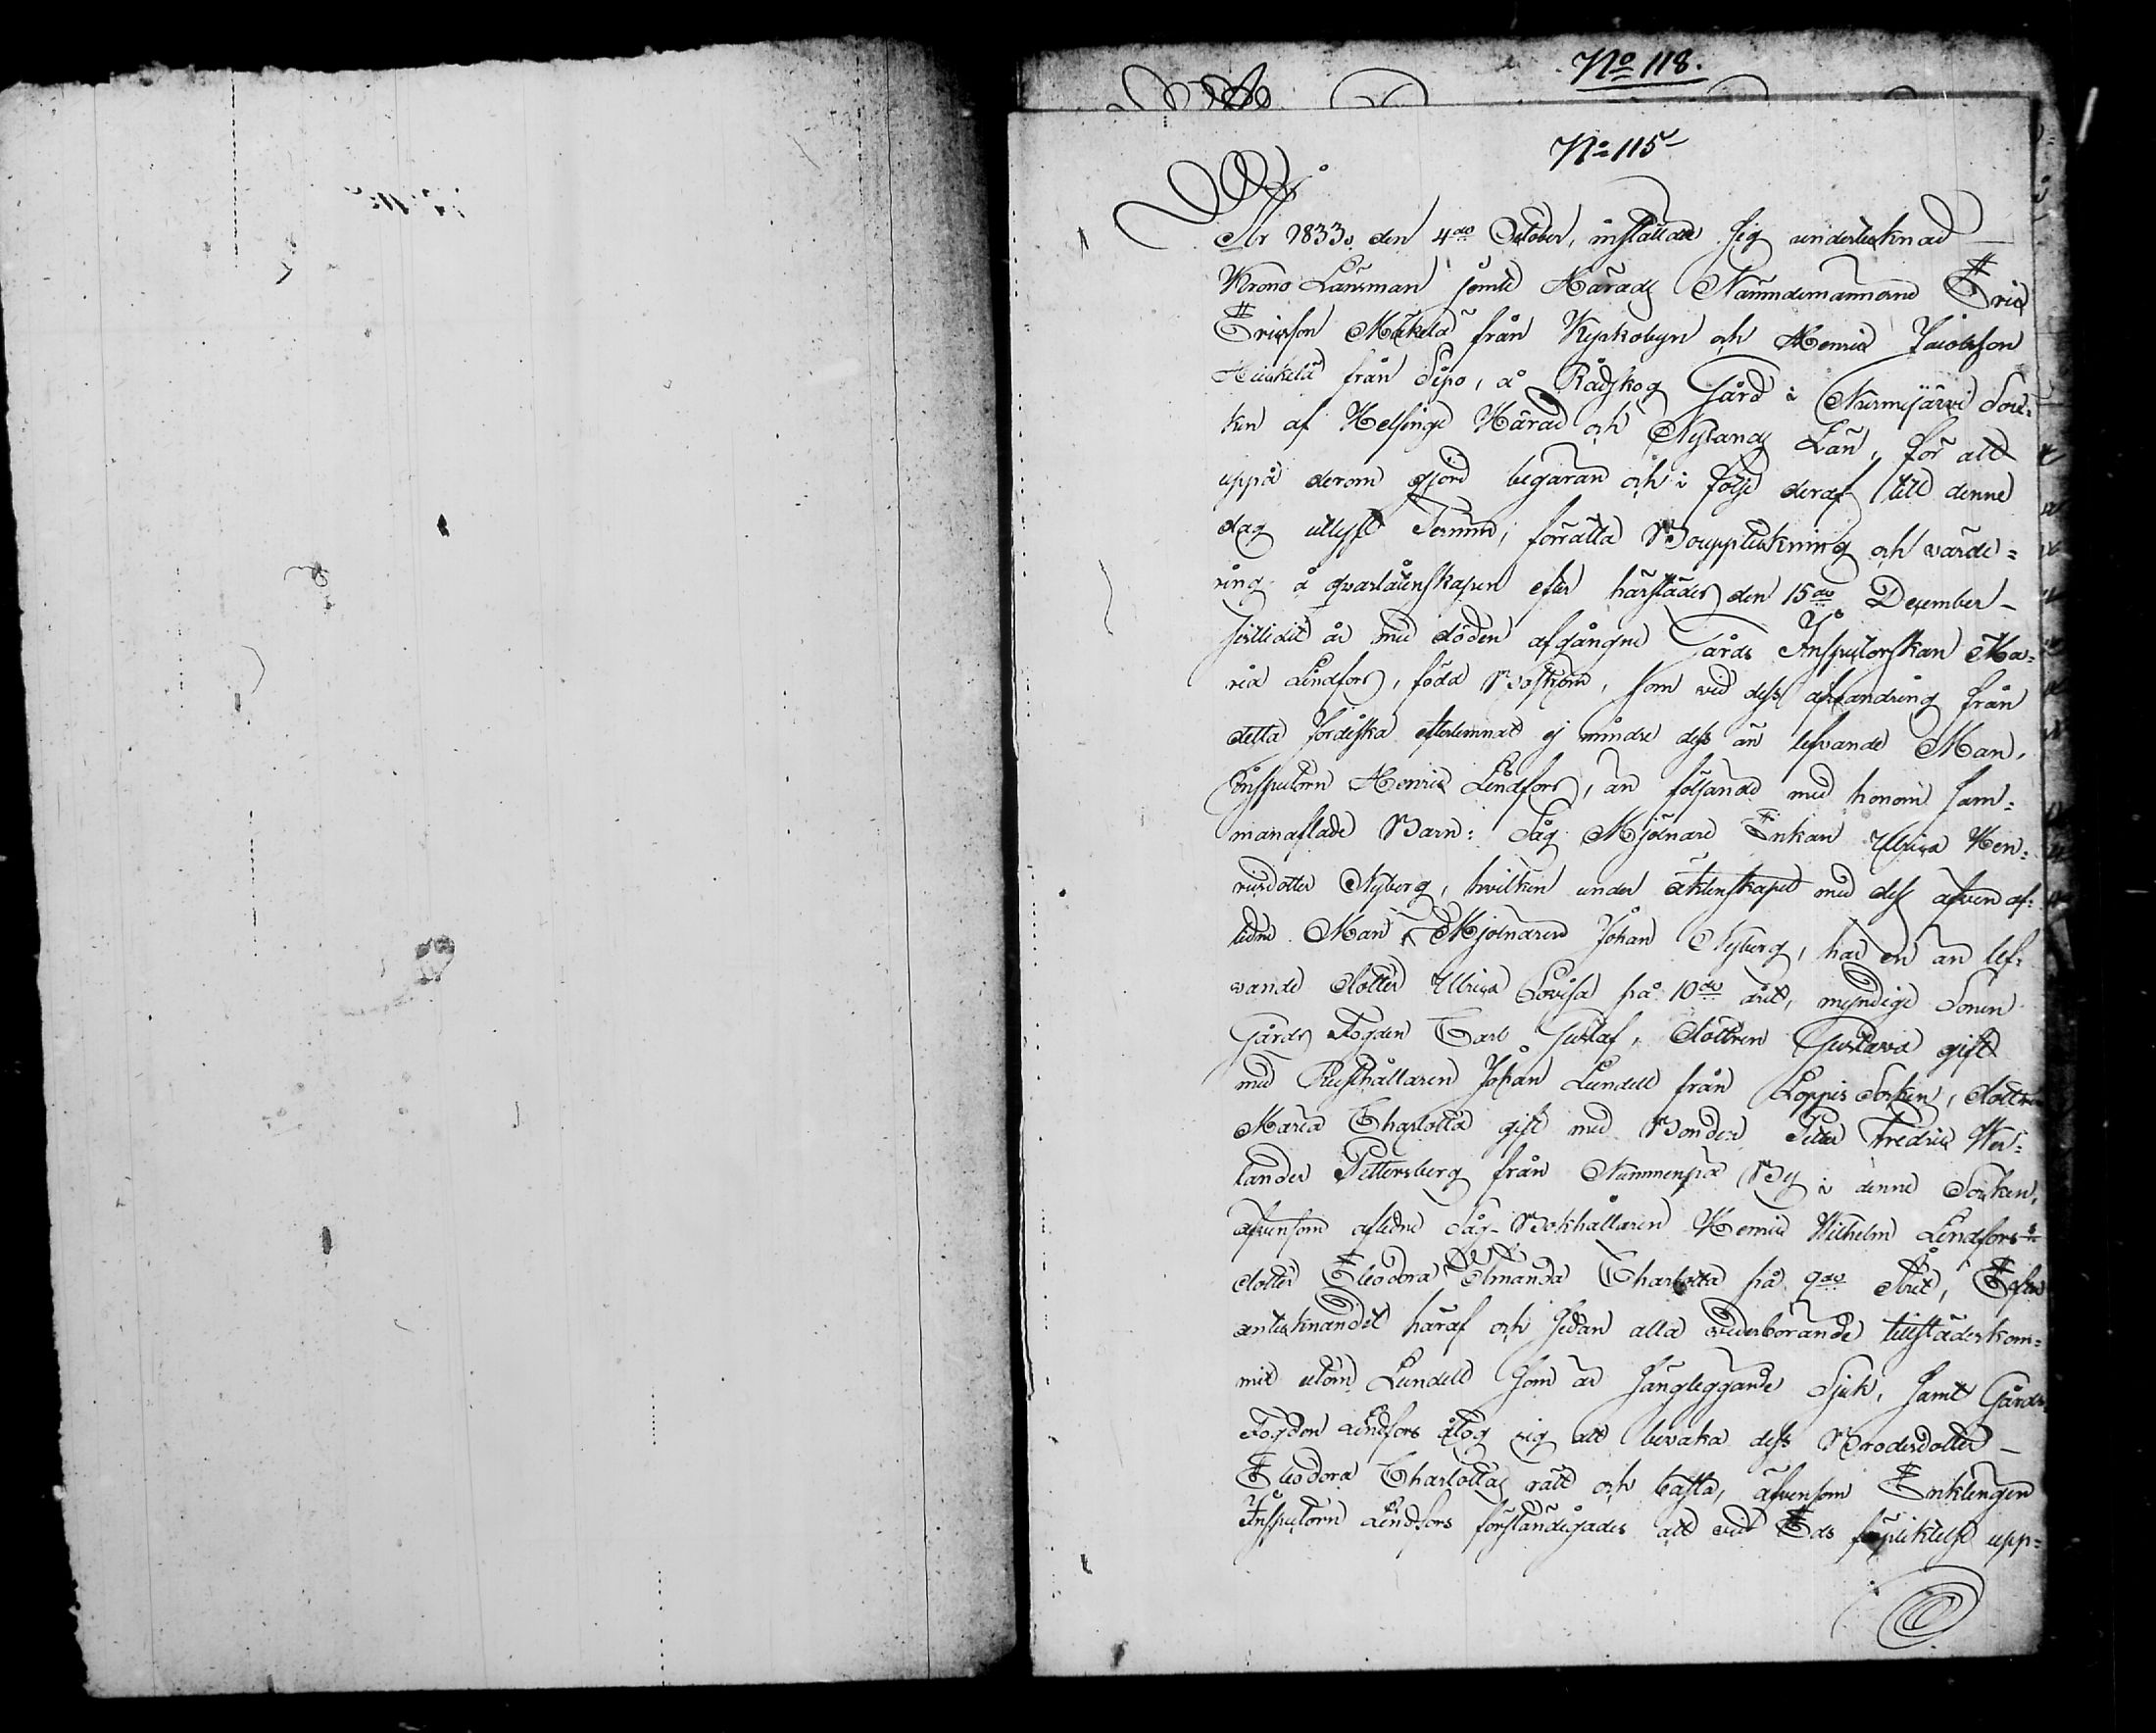 No 118.
No 115
År 1833, den 4de October, inställde sig undertecknad
Krono Länsman jemte Härads Nämndemännerne Eric
Ericsson Mäkelä från Kyrkobyn och Henric Jacobsson
från Sipo, å Rådskog Gård i Nurmijärvi Soc=
ken af Helsinge Härad och Nylands Län, för att
uppå derom gjord begäran och i följe deraf till denne
dag utlyst Termin, förrätta Bouppteckning och värde=
ring å qvarlåtenskapen efter härstädes den 15de December
sistledit år med döden afgångne Gårds Inspectorskan Ma=
ria Lindfors, född Boström, som vid dess afvandring från
detta jordiska efterlemnat ej mindre dess än lefvande Man,
Inspectorn Henric Lindfors, än följande med honom sam=
manaflade Barn: Såg Mjölnare Enkan Ulrica Hen=
ricsdotter Nyberg, hvilken under äktenskapet med dess äfven af=
ledne Man Mjölnaren Johan Nyberg, har en än lef=
vande dotter Ulrica Lovisa på 10de året, myndige Sonen
Gårds Fogden Carl Gustaf, dottren Gustava gift
med Rusthållaren Johan Lundell från Loppis Socken, dottren
Maria Charlotta gift med Bonden Petter Fredric Wer=
lander Pettersberg från Nummenpää By i denne Socken,
äfvensom afledne Såg-Bokhållaren Henric Wilhelm Lindfors
dotter Eleodora Amanda Charlotta på 9de året, Efter
antecknandet häraf och sedan alla vederbörande tillstädeskom=
mit utom Lundell som är sängliggande Sjuk, samt Gårds
Fogden Lindfors åtog sig att bevaka dess Brodersdotter
Eleodora Charlottas rätt och bästa, äfvensom Enklingen
Inspectorn Lindfors förständigades att vid Eds förpliktelse upp=